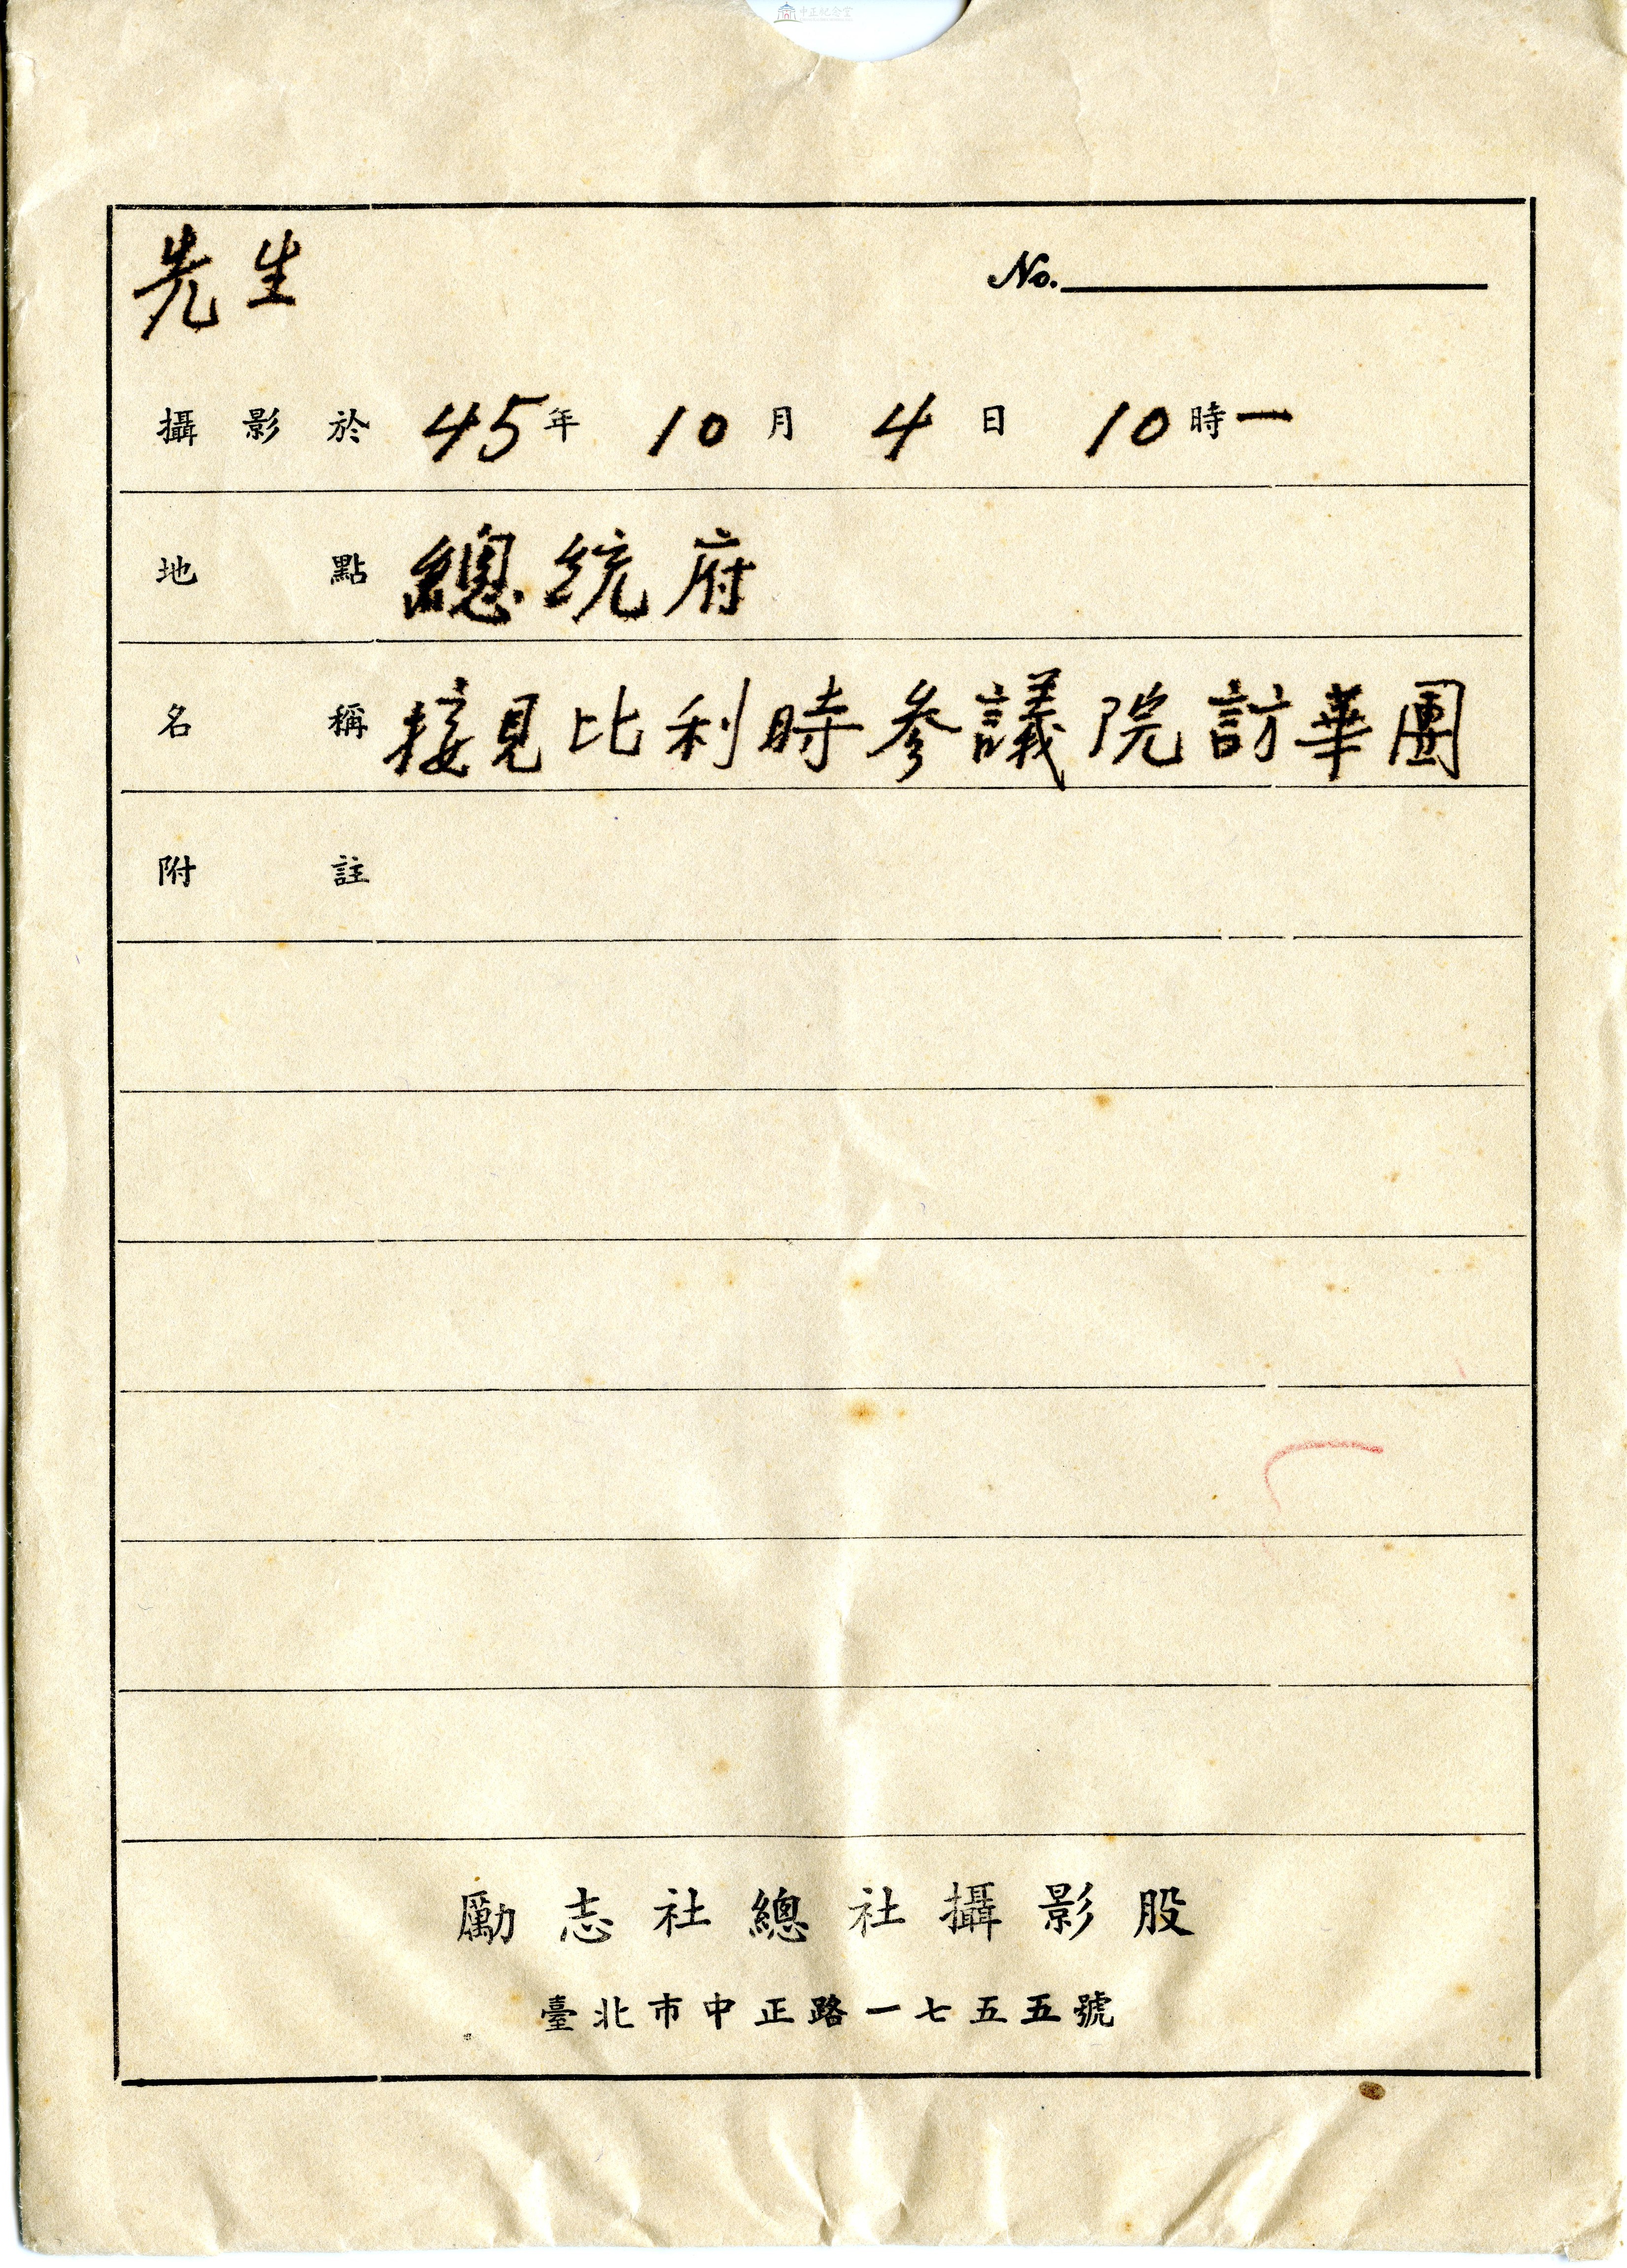 中正紀念堂
先生 No.
攝影於 45年 10月 4日 10時一
地點 總統府
名稱 接見比利時參議院訪華團
附註
勵志社總社攝影股
臺北市中正路一七五五號